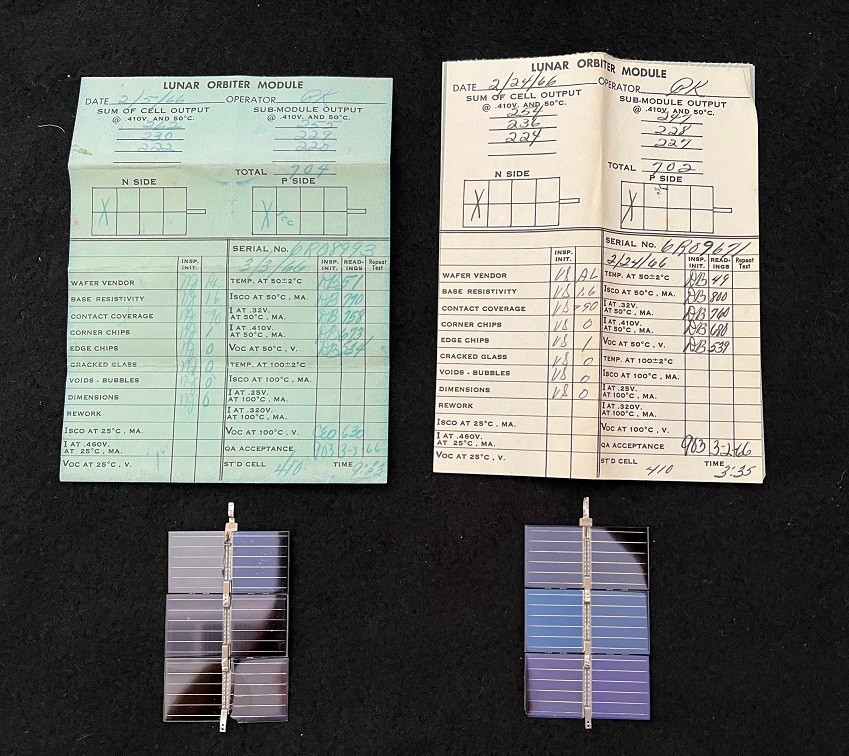 LUNAR ORBITER MODULE
DATE 2/5/66 OPERATOR
SUM OF CELL OUTPUT SUB-MODULE OUTPUT
@ .410V. AND 50°C. @ .410V. AND 50°C.
229
222
TOTAL 704
N SIDE P SIDE
X X
SERIAL No. 6R08993
3/3/66
INSP. INIT. INSP. INIT. READ-INGS Repeat Test
WAFER VENDOR TEMP. AT 50±2°C DB 51
BASE RESISTIVITY 1.6 ISCO AT 50°C, MA. DB 790
CONTACT COVERAGE I AT .32V. AT 50°C, MA. DB 758
CORNER CHIPS I AT .410V. AT 50°C, MA. DB 673
EDGE CHIPS 0 VOC AT 50°C, V. DB 534
CRACKED GLASS 0 TEMP. AT 100±2°C
VOIDS - BUBBLES 0 ISCO AT 100°C, MA.
DIMENSIONS 0 I AT .25V. AT 100°C, MA.
REWORK I AT .320V. AT 100°C, MA.
ISCO AT 25°C, MA. VOC AT 100°C, V.
I AT .460V. AT 25°C, MA. QA ACCEPTANCE
VOC AT 25°C, V. ST'D CELL 410 TIME
LUNAR ORBITER MODULE
DATE 2/24/66 OPERATOR
SUM OF CELL OUTPUT SUB-MODULE OUTPUT
@ .410V. AND 50°C. @ .410V. AND 50°C.
254 247
236 228
224 227
TOTAL 702
N SIDE P SIDE
X X
SERIAL No. 6R09671
2/24/66
INSP. INIT. INSP. INIT. READ-INGS Repeat Test
WAFER VENDOR VS AL TEMP. AT 50±2°C DB 49
BASE RESISTIVITY VS 1.6 ISCO AT 50°C, MA. DB 800
CONTACT COVERAGE VS >90 I AT .32V. AT 50°C, MA. DB 760
CORNER CHIPS VS 0 I AT .410V. AT 50°C, MA. DB 680
EDGE CHIPS VS 1 VOC AT 50°C, V. DB 539
CRACKED GLASS VS 0 TEMP. AT 100±2°C
VOIDS - BUBBLES VS 0 ISCO AT 100°C, MA.
DIMENSIONS VS 0 I AT .25V. AT 100°C, MA.
REWORK I AT .320V. AT 100°C, MA.
ISCO AT 25°C, MA. VOC AT 100°C, V.
I AT .460V. AT 25°C, MA. QA ACCEPTANCE 903 3-2-66
VOC AT 25°C, V. ST'D CELL 410 TIME 3:35